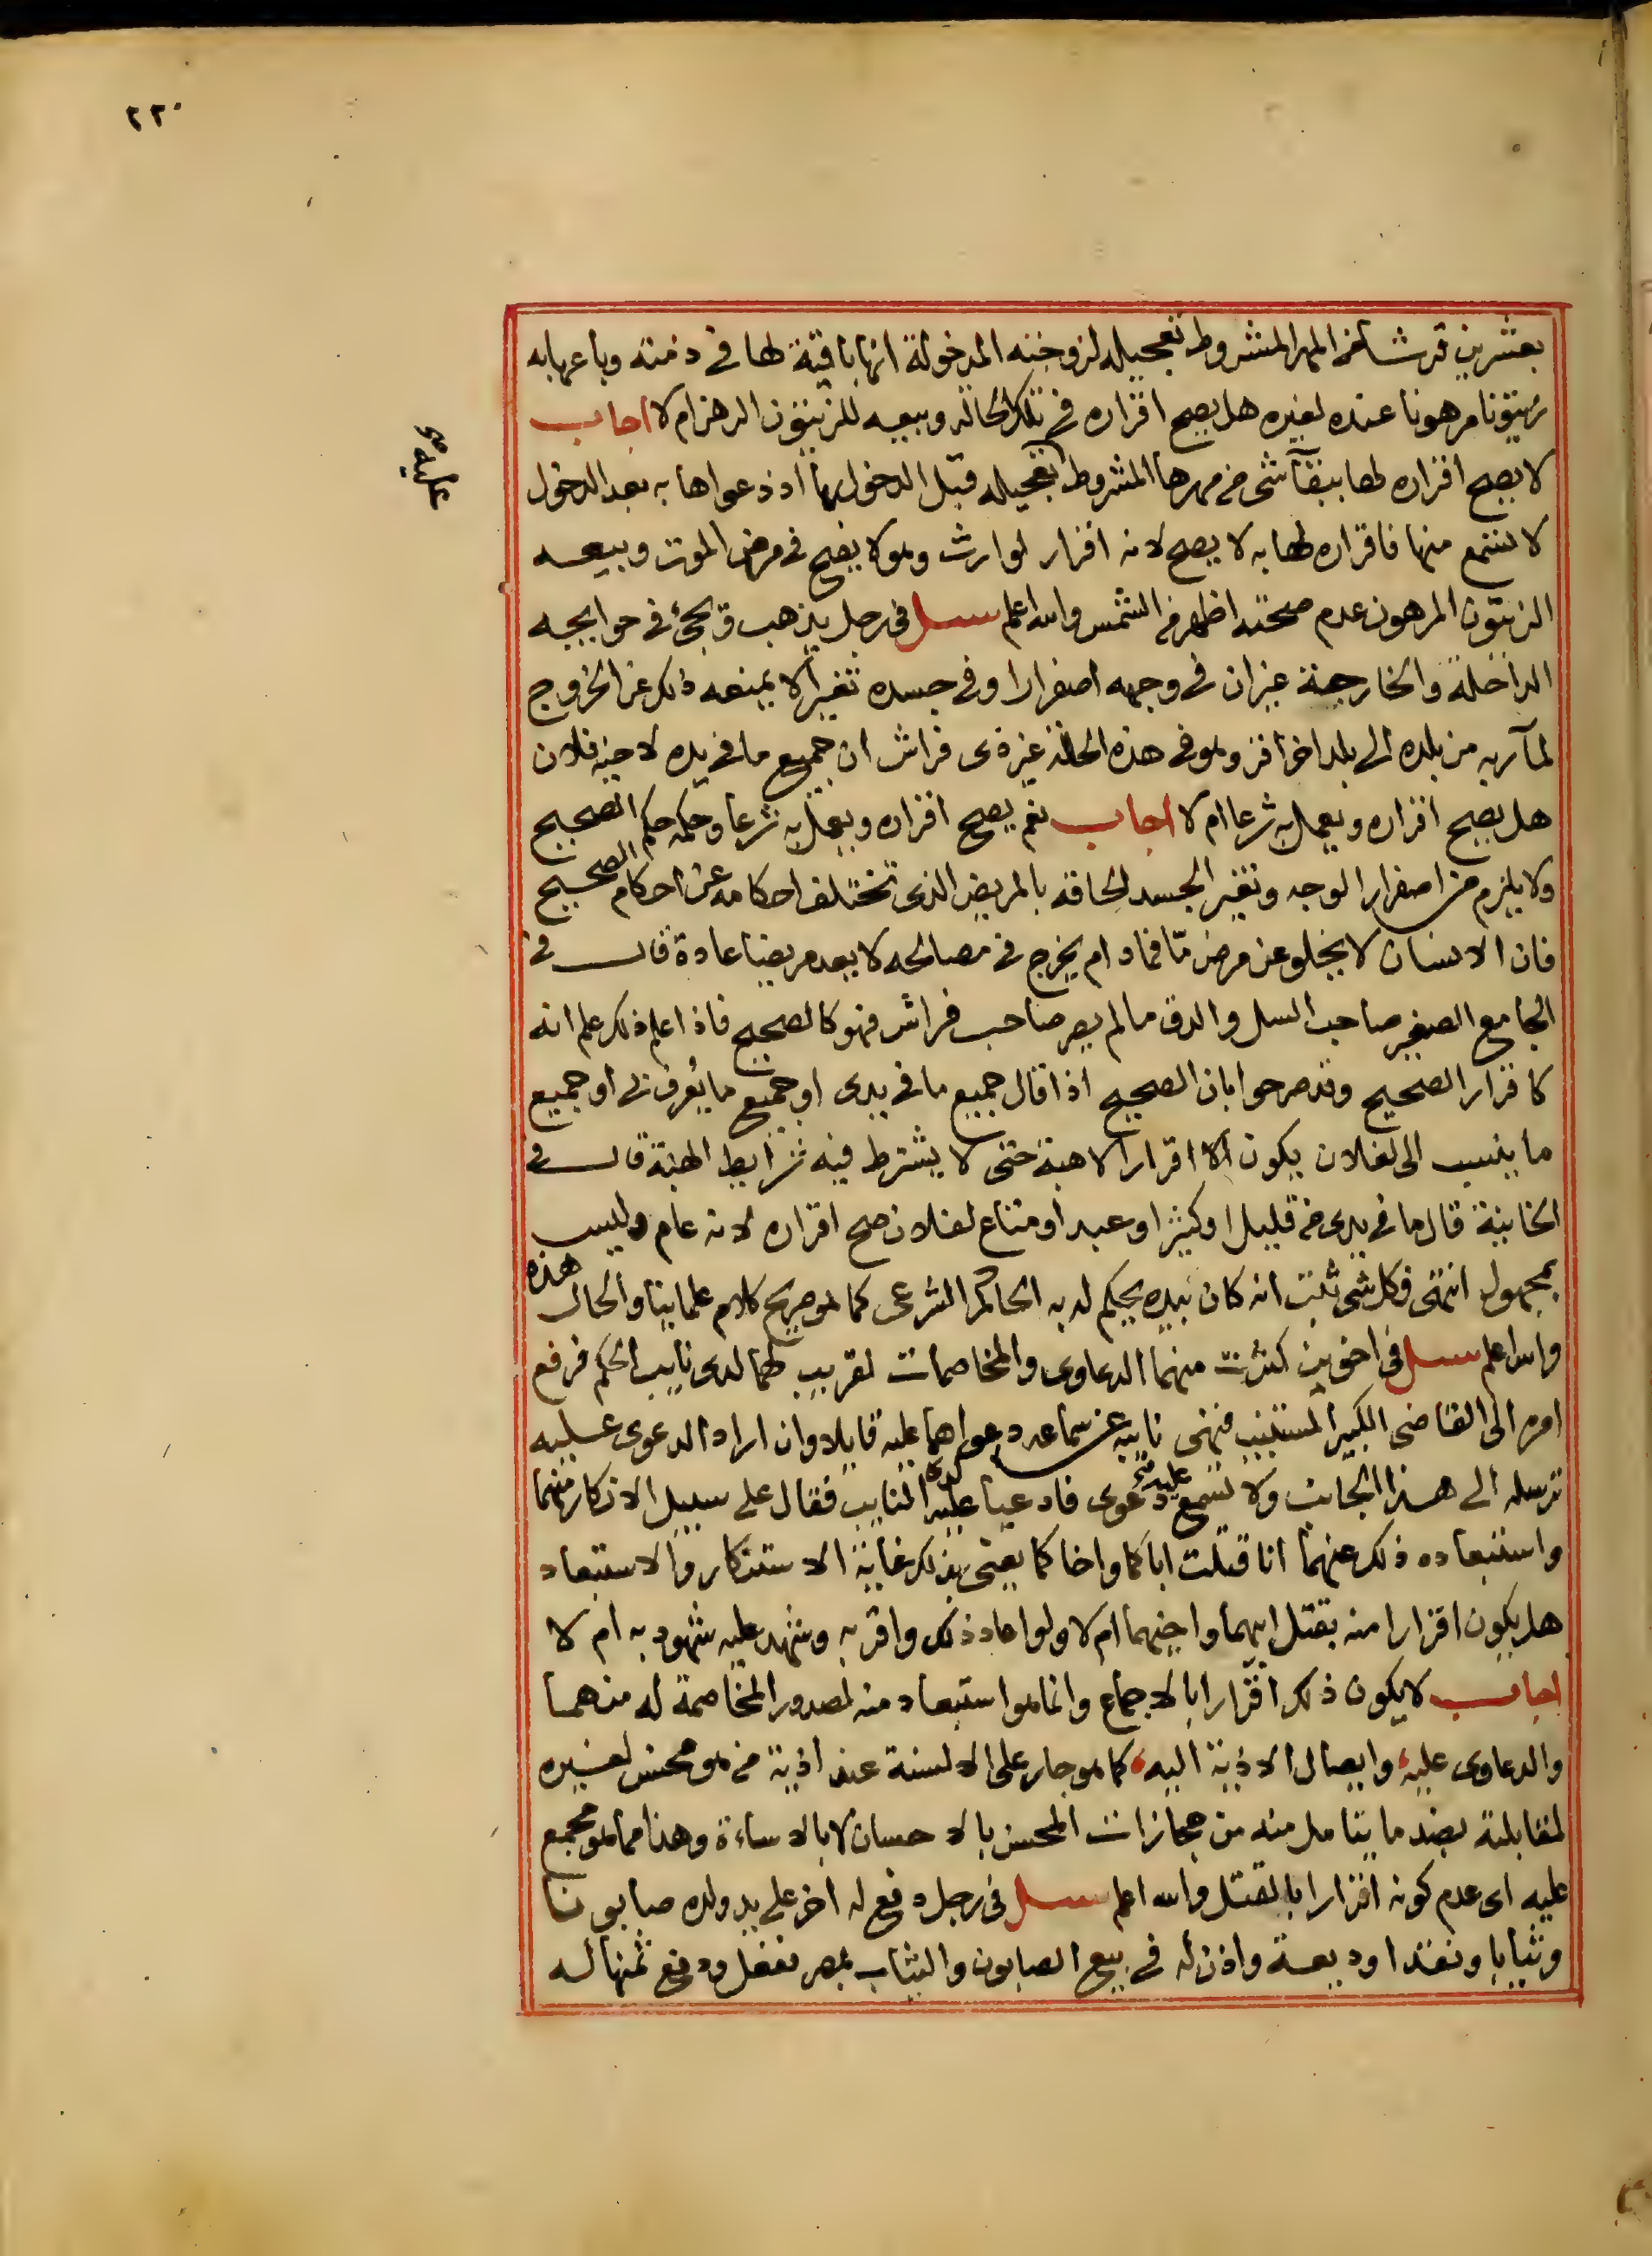 ٢٢٠
بعشرين قرشا من المهر المشروط تعجيله لزوجته المدخولة انها باقية لها في ذمته وباعها به
زيتونا مرهونا عنده لغيره هل يصح اقراره في تلك الحالة وبيعه للزيتون الرهن ام لا اجاب
لا يصح اقراره لها ببقآ شى من مهرها المشروط تعجيله قبل الدخول بها اذ دعواها به بعد الدخول
لا تسمع منها فاقراره لها به لا يصح لانه اقرار لوارث وهو لا يصح في مرض الموت وبيعه
الزيتون المرهون عدم صحته اظهر من الشمس والله اعلم سئل فى رجل يذهب ويجئ في حوايجه
الداخلة والخارجة غير ان في وجهه اصفرارا وفي جسده تغيرا لا يمنعه ذلك عن الخروج
لمآربه من بلده الى بلد اخر اقر وهو في هذه الحالة غير ذى فراش ان جميع ما في يده لاخيه فلان
هل يصح اقراره ويعمل به شرعا ام لا اجاب نعم يصح اقراره ويعمل به شرعا وحكمه حكم الصحيح
ولا يلزم من اصفرار الوجه وتغير الجسد لحاقه بالمريض الذى تختلف احكامه عن احكام الصحيح
فان الانسان لا يخلو عن مرض مّا فمادام يخرج في مصالحه لا يعد مريضا عادة قال في
الجامع الصغير صاحب السل والدق ما لم يصر صاحب فراش فهو كالصحيح فاذا علم ذلك علم انه
كاقرار الصحيح وقد صرحوا بان الصحيح اذا قال جميع ما في يدى او جميع ما يُعرف لى او جميع
ما ينسب الى لفلان يكون اقرارا لا هبة حتى لا يشترط فيه شرايط الهبة قال في
الخانية قال ما في يدى من قليل او كثير او عبد او متاع لفلان صح اقراره لانه عام وليس
بمجهول انتهى فكل شى ثبت انه كان بيده يحكم له به الحاكم الشرعى كما هو صريح كلام علماينا والحال هذه
والله اعلم سئل فى اخوين كثرت منهما الدعاوى والمخاصمات لقريب لهما لدى نايب الحكم فرفع
امره الى القاضى الكبير المستنيب فنهى نايبه عن سماعه دعواهما عليه قايلا وان اراد الدعوى عليه
ترسله الى هذا الجانب ولا تسمع عليه دعوى فادعيا عليه لدى النايب فقال على سبيل الانكار منهما
واستبعاده ذلك عنهما انا قتلت اباكما واخاكما يعنى بذلك غاية الاستنكار والاستبعاد
هل يكون اقرارا منه بقتل ابيهما واخيهما ام لا ولو اعاد ذلك واقر به وشهد عليه شهود به ام لا
اجاب لا يكون ذلك اقرارا بالاجماع وانما هو استبعاد منه لصدور المخاصمة له منهما
والدعاوى عليه وايصال الاذية اليه كما هو جار على الالسنة عند اذية من هو محسن لغيره
لمقابلته بضد ما يتامل منه من مجازات المحسن بالاحسان لا بالاساءة وهذا مما هو مجمع
عليه اى عدم كونه اقرارا بالقتل والله اعلم سئل فى رجل دفع له اخر على يد ولده صابونا
وثيابا ونقدا وديعة واذن له في بيع الصابون والثياب بمصر ففعل ودفع ثمنها له